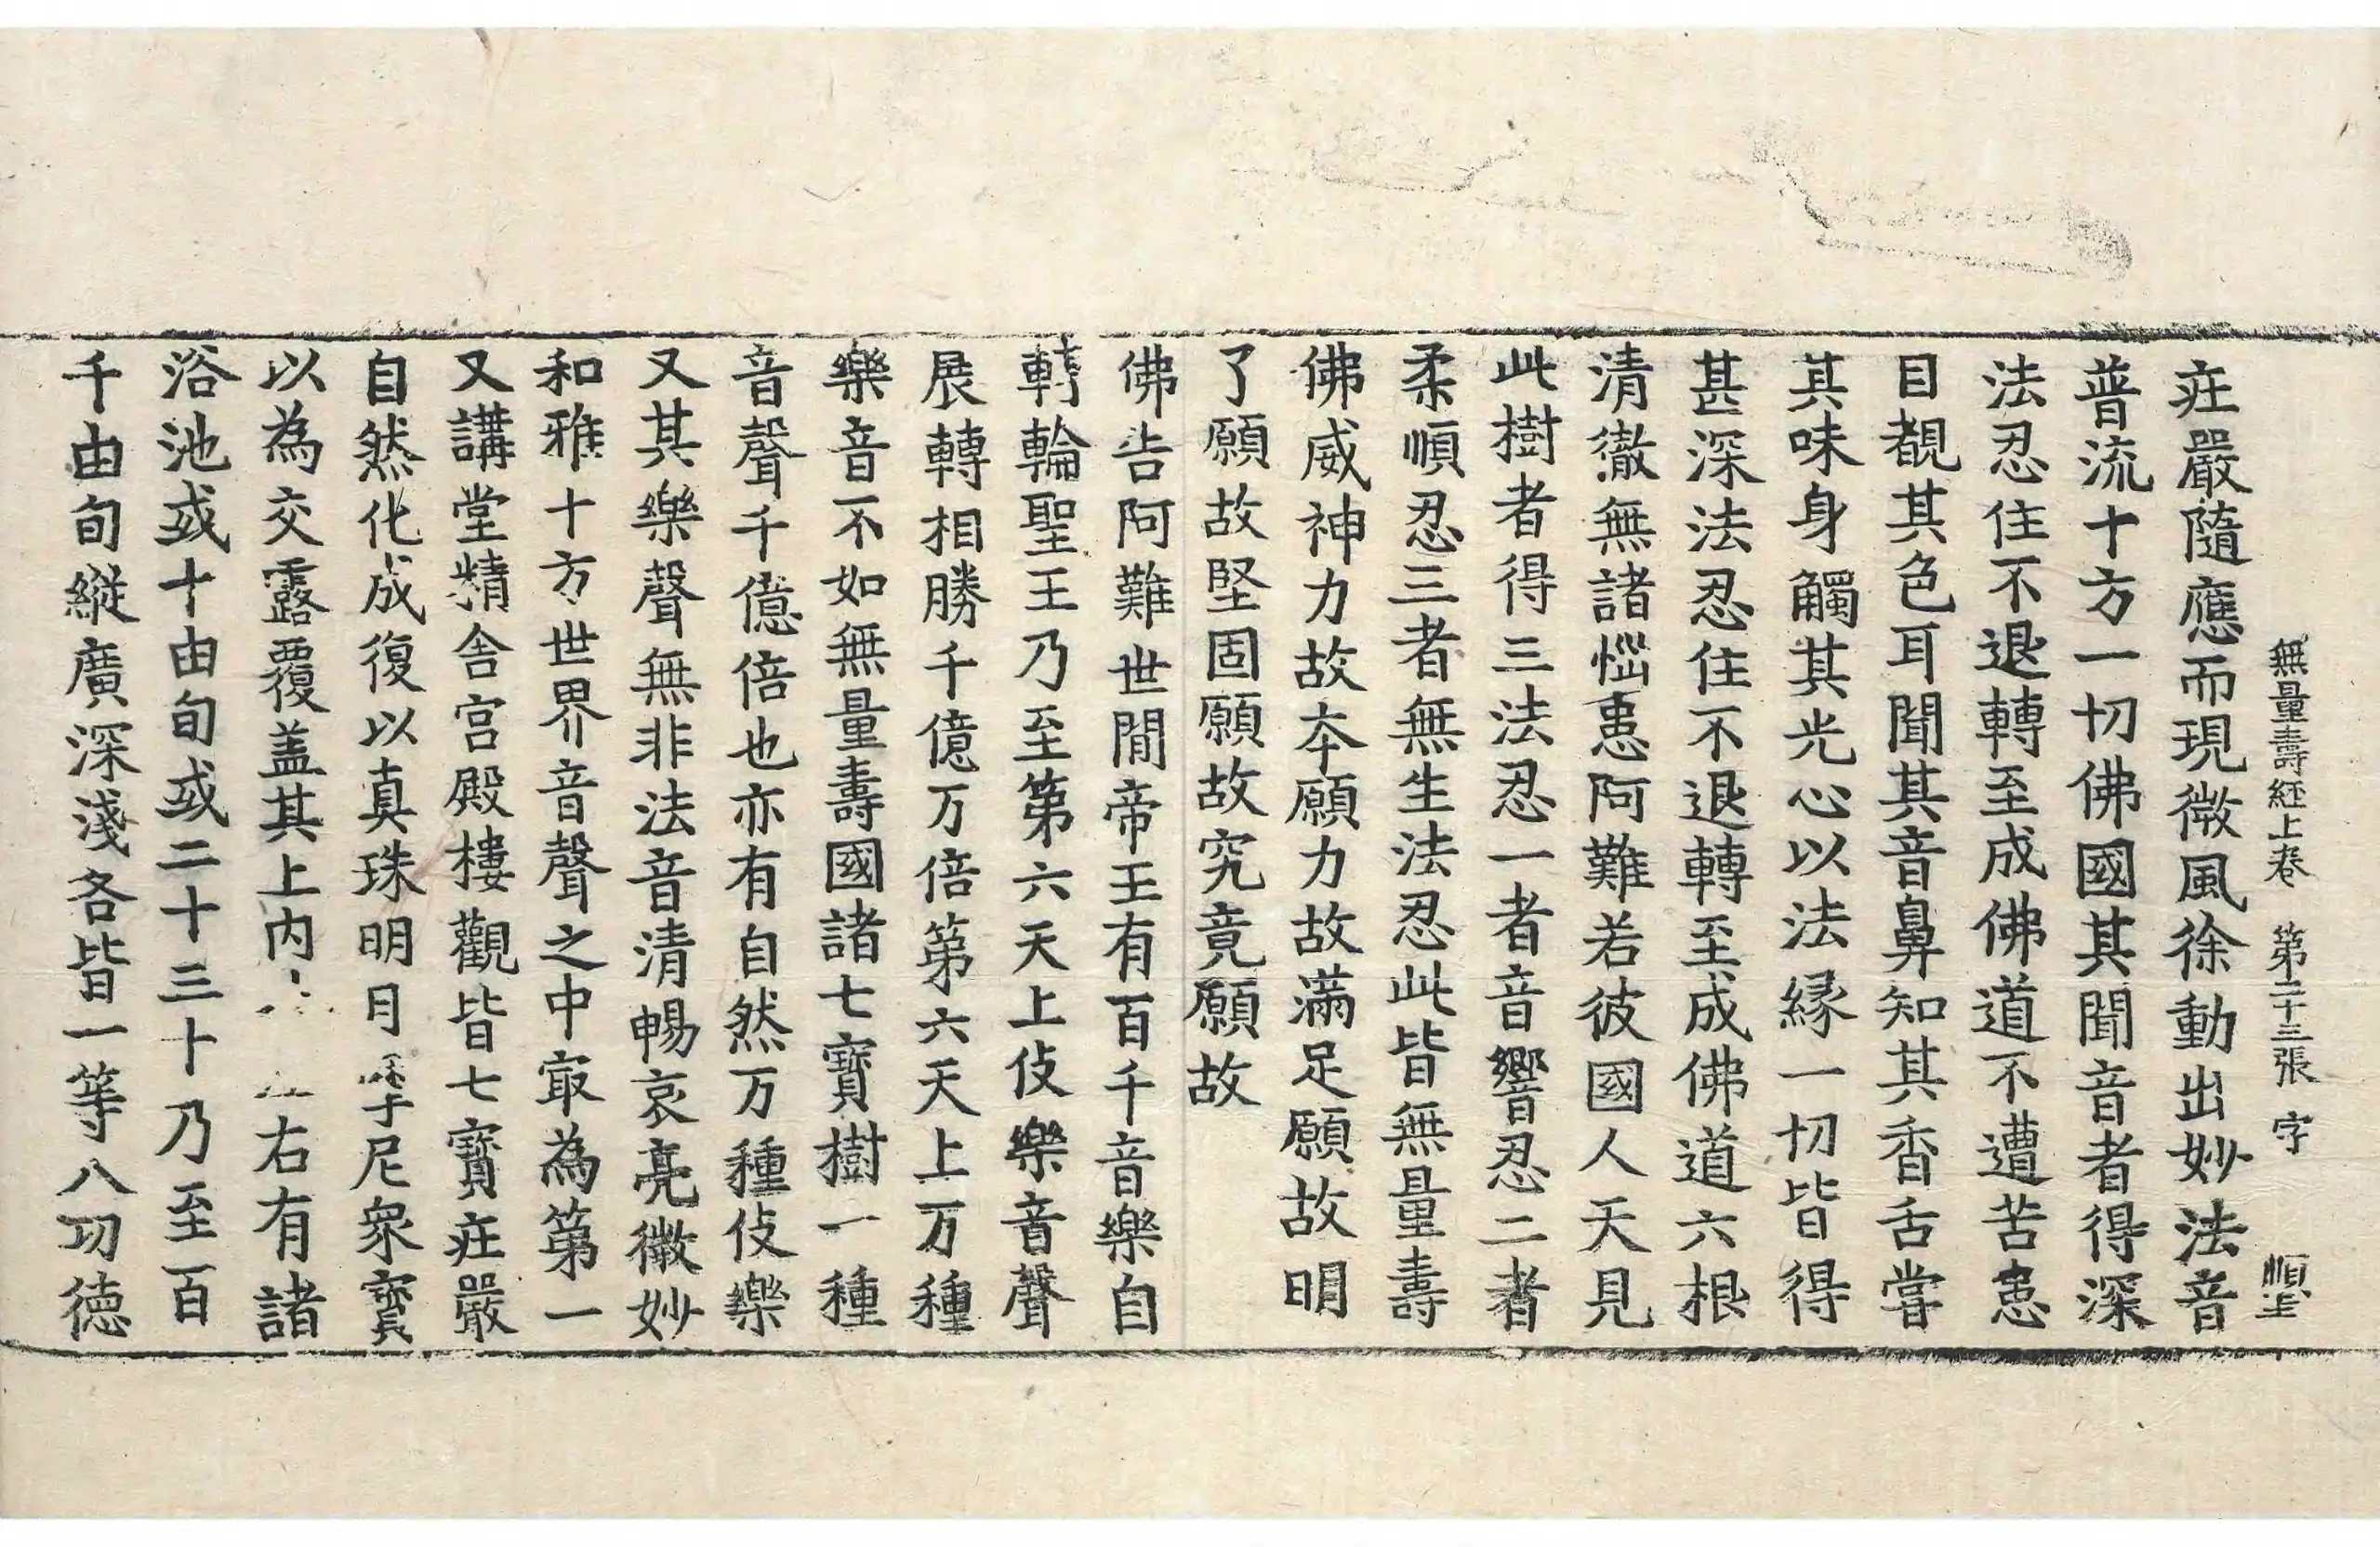 無量壽経上卷 第二十三張 字 順生
庄嚴隨應而現微風徐動出妙法音
普流十方一切佛國其聞音者得深
法忍住不退轉至成佛道不遭苦患
目覩其色耳聞其音鼻知其香舌嘗
其味身觸其光心以法緣一切皆得
甚深法忍住不退轉至成佛道六根
清徹無諸惱患阿難若彼國人天見
此樹者得三法忍一者音響忍二者
柔順忍三者無生法忍此皆無量壽
佛威神力故本願力故滿足願故明
了願故堅固願故究竟願故
佛告阿難世間帝王有百千音樂自
轉輪聖王乃至第六天上伎樂音聲
展轉相勝千億万倍第六天上万種
樂音不如無量壽國諸七寶樹一種
音聲千億倍也亦有自然万種伎樂
又其樂聲無非法音清暢哀亮微妙
和雅十方世界音聲之中㝡為第一
又講堂精舍宮殿樓觀皆七寶庄嚴
自然化成復以真珠明月摩尼衆寶
以為交露覆盖其上内右有諸
浴池或十由旬或二十三十乃至百
千由旬縱廣深淺各皆一等八功德